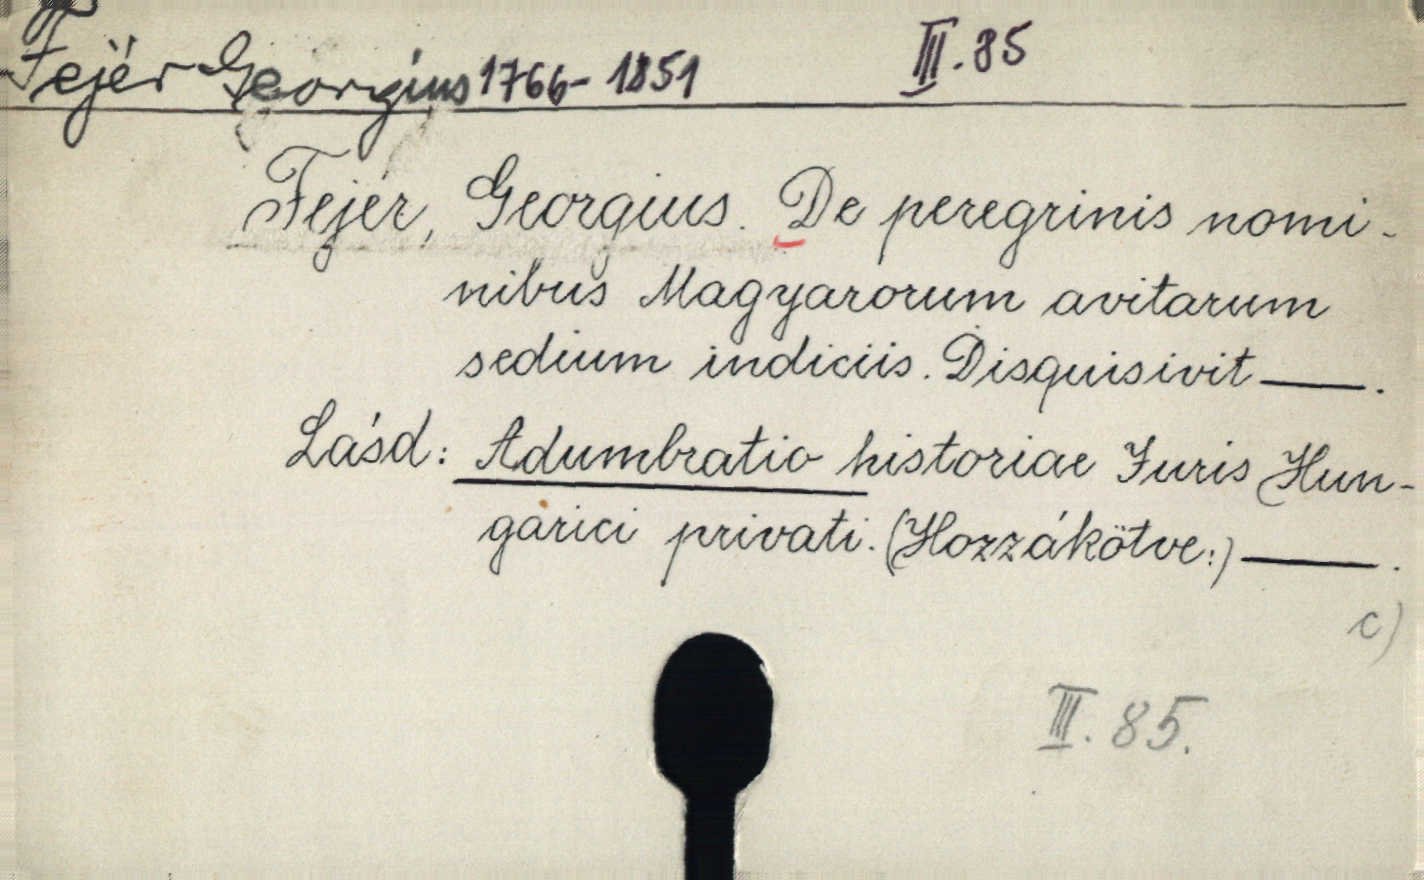 Fejér Georgius 1766-1851 III.85
Fejér, Georgius. De peregrinis nomi-
nibus Magyarorum avitarum
sedium indiciis. Disquisivit —.
Lásd: Adumbratio historiae Juris Hun-
garici privati. (Hozzákötve:) —.
c)
III.85.